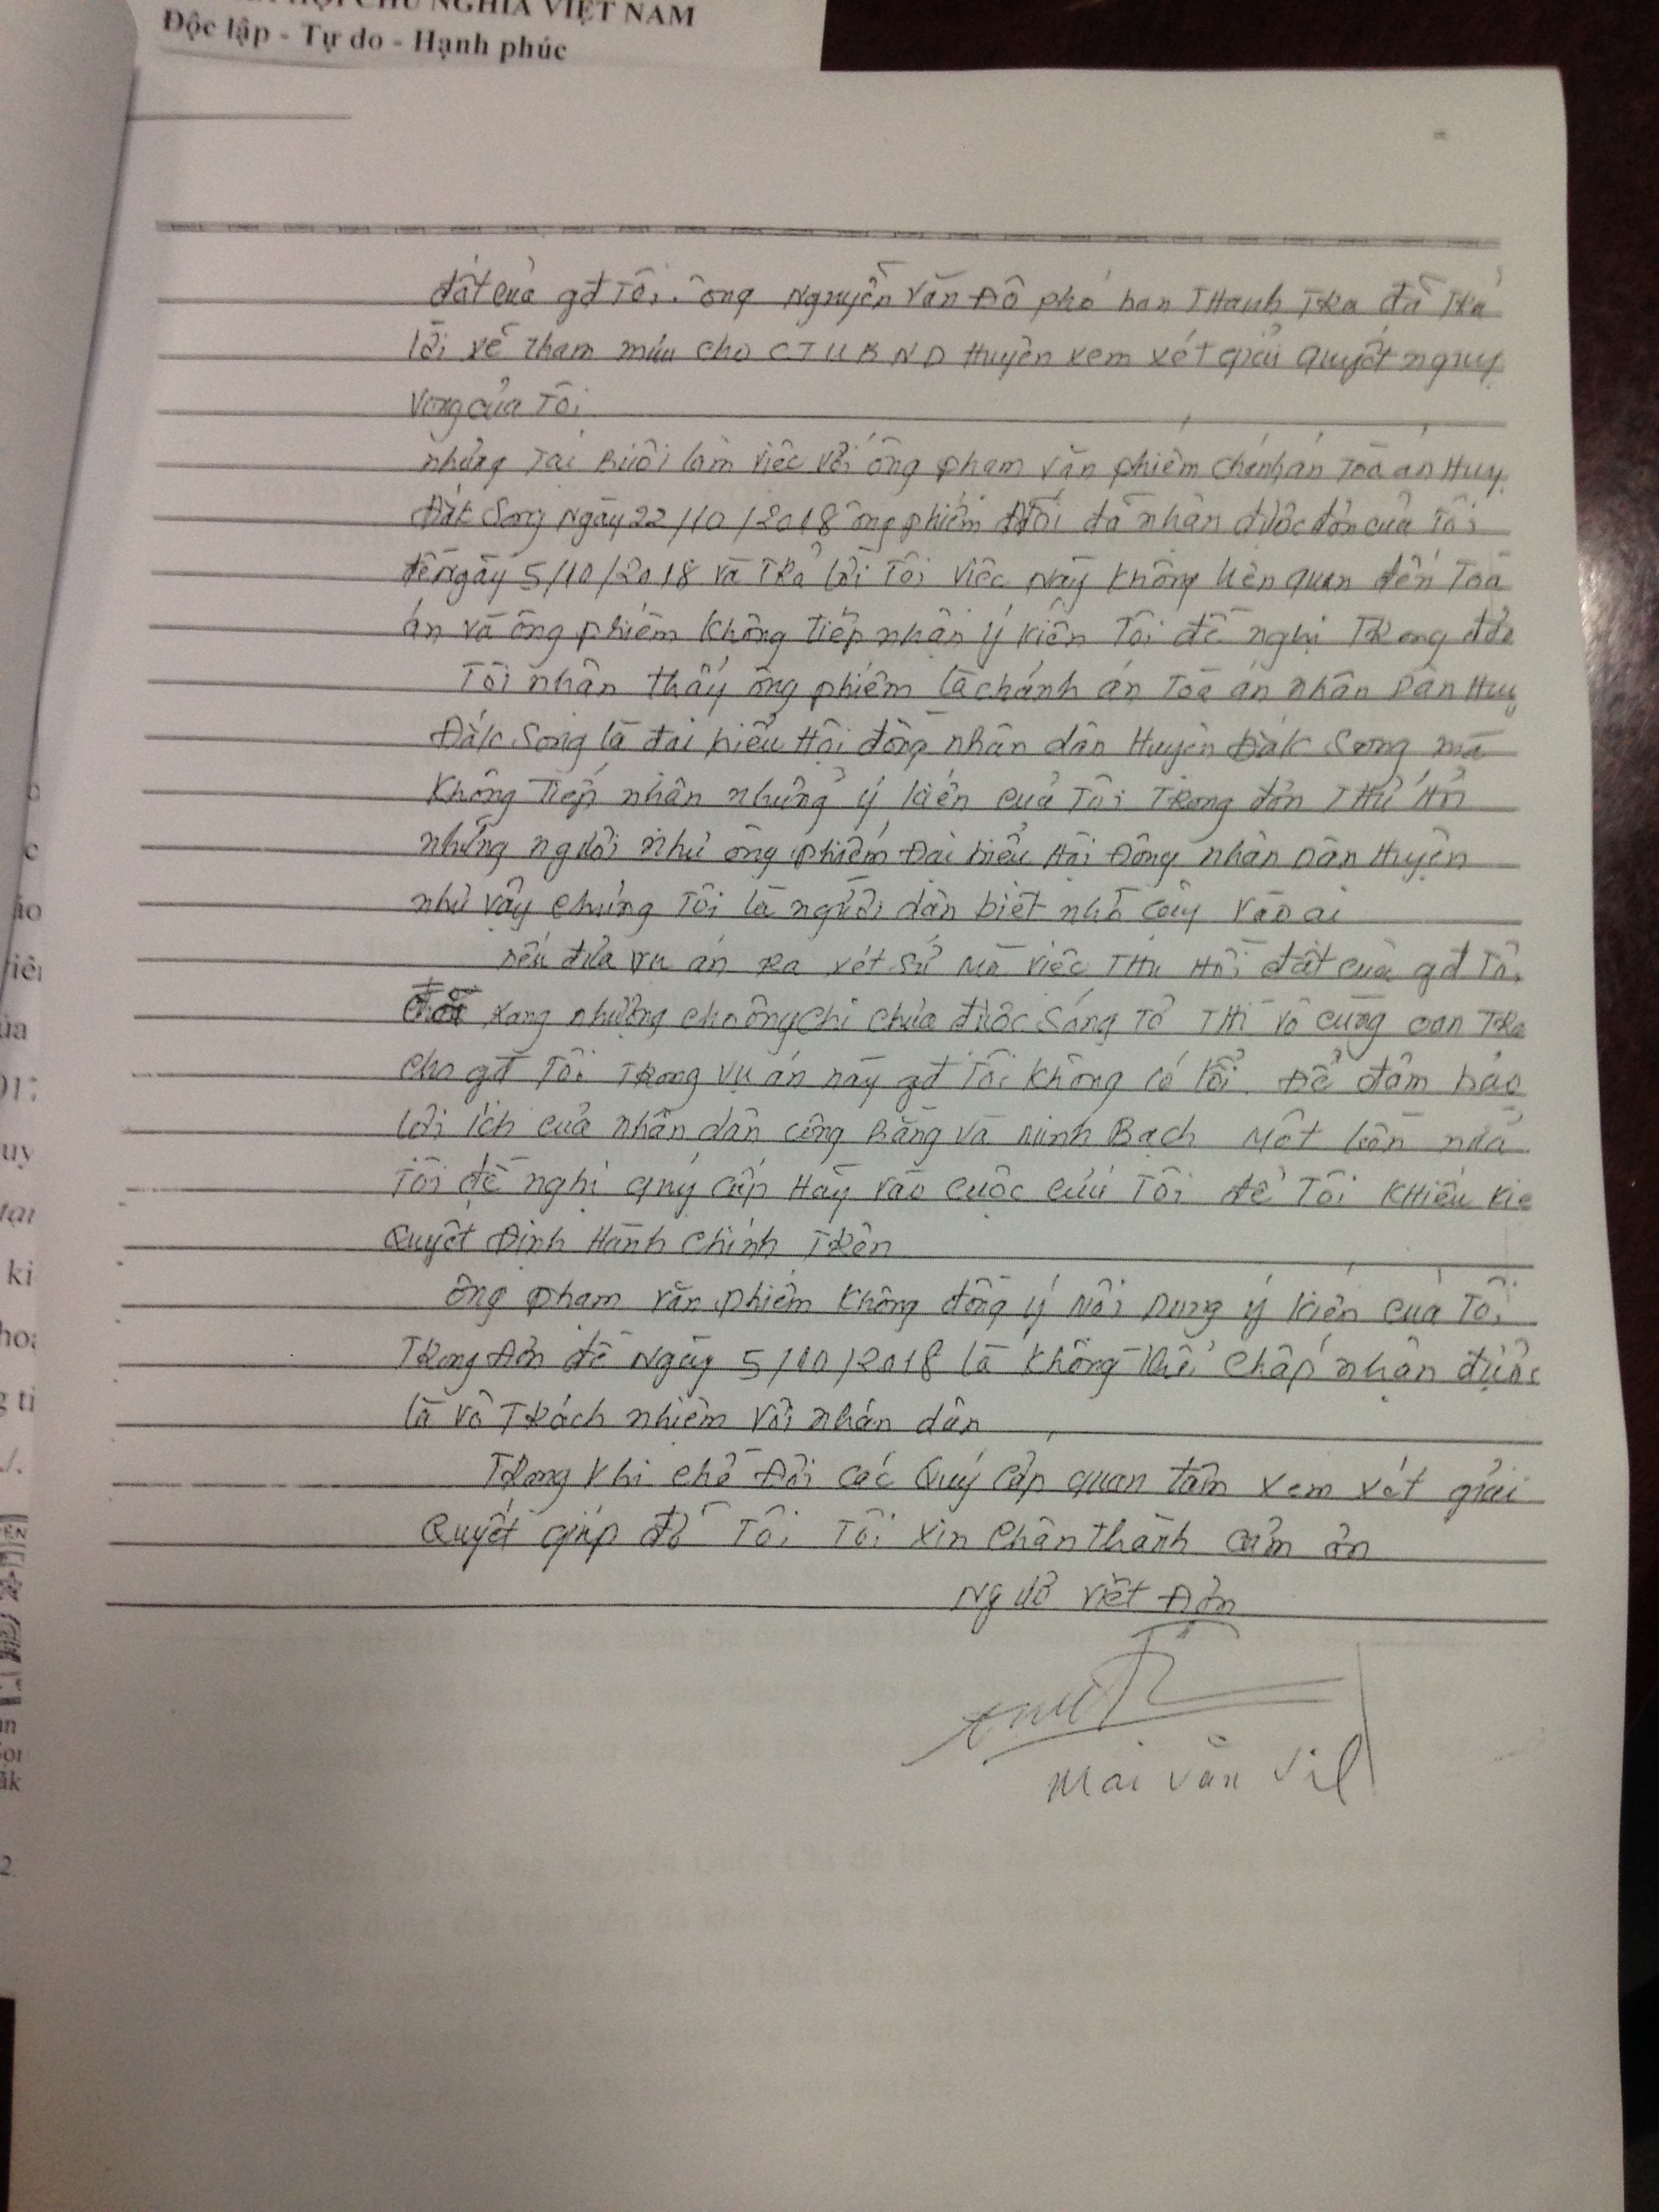 HỘI CHỦ NGHĨA VIỆT NAM
Độc lập - Tự do - Hạnh phúc
đất của gđ Tôi. ông Nguyễn Văn Đô phó ban THanh TRa đã TRả
lời xẽ Tham mưu cho CTUBND Huyện xem xét giải quyết nguy
vọng của Tôi
nhưng Tại Buổi làm việc với ông phạm văn phiếm chánh án Toà án Huy
Đắk Song Ngày 22/10/2018 ông phiếm đã nhận được đơn của Tôi
đề Ngày 5/10/2018 và TRả lời Tôi việc Này không liên quan đến Toà
án và ông phiếm không Tiếp nhận ý kiến Tôi đề nghị TRong đơn
Tôi nhận thấy ông phiếm là chánh án Toà án nhân Dân Huy
Đắk Song là đại biểu Hội đồng nhân dân Huyện Đắk Song mà
không Tiếp nhận những ý kiến của Tôi TRong đơn THử Hỏi
những người như ông phiếm Đại biểu Hội Đồng nhân Dân Huyện
như vậy chúng Tôi là người dân biết nhờ cậy vào ai
nếu đưa vụ án Ra xét sử Mà việc THu Hồi đất của gđ Tôi
xang nhượng cho ông chi chưa được Sáng Tỏ THì vô cùng oan TRá
cho gđ Tôi TRong vụ án này gđ Tôi không có lỗi. Để đảm bảo
lợi ích của nhân dân công Bằng và Minh Bạch Một lần nữa
Tôi đề nghị quý cấp Hãy vào cuộc cứu Tôi để Tôi KHiếu kiệ
Quyết Định Hành chính TRên
ông phạm văn phiếm không đồng ý Nội Dung ý kiến của Tôi
TRong Đơn đề Ngày 5/10/2018 là không thể chấp nhận được
là vô TRách nhiệm với nhân dân
TRong khi chờ Đợi các Quý cấp quan tâm xem xét giải
Quyết giúp đỡ Tôi Tôi xin chân thành cảm ơn
Ngườ viết Đơn
Mai Văn